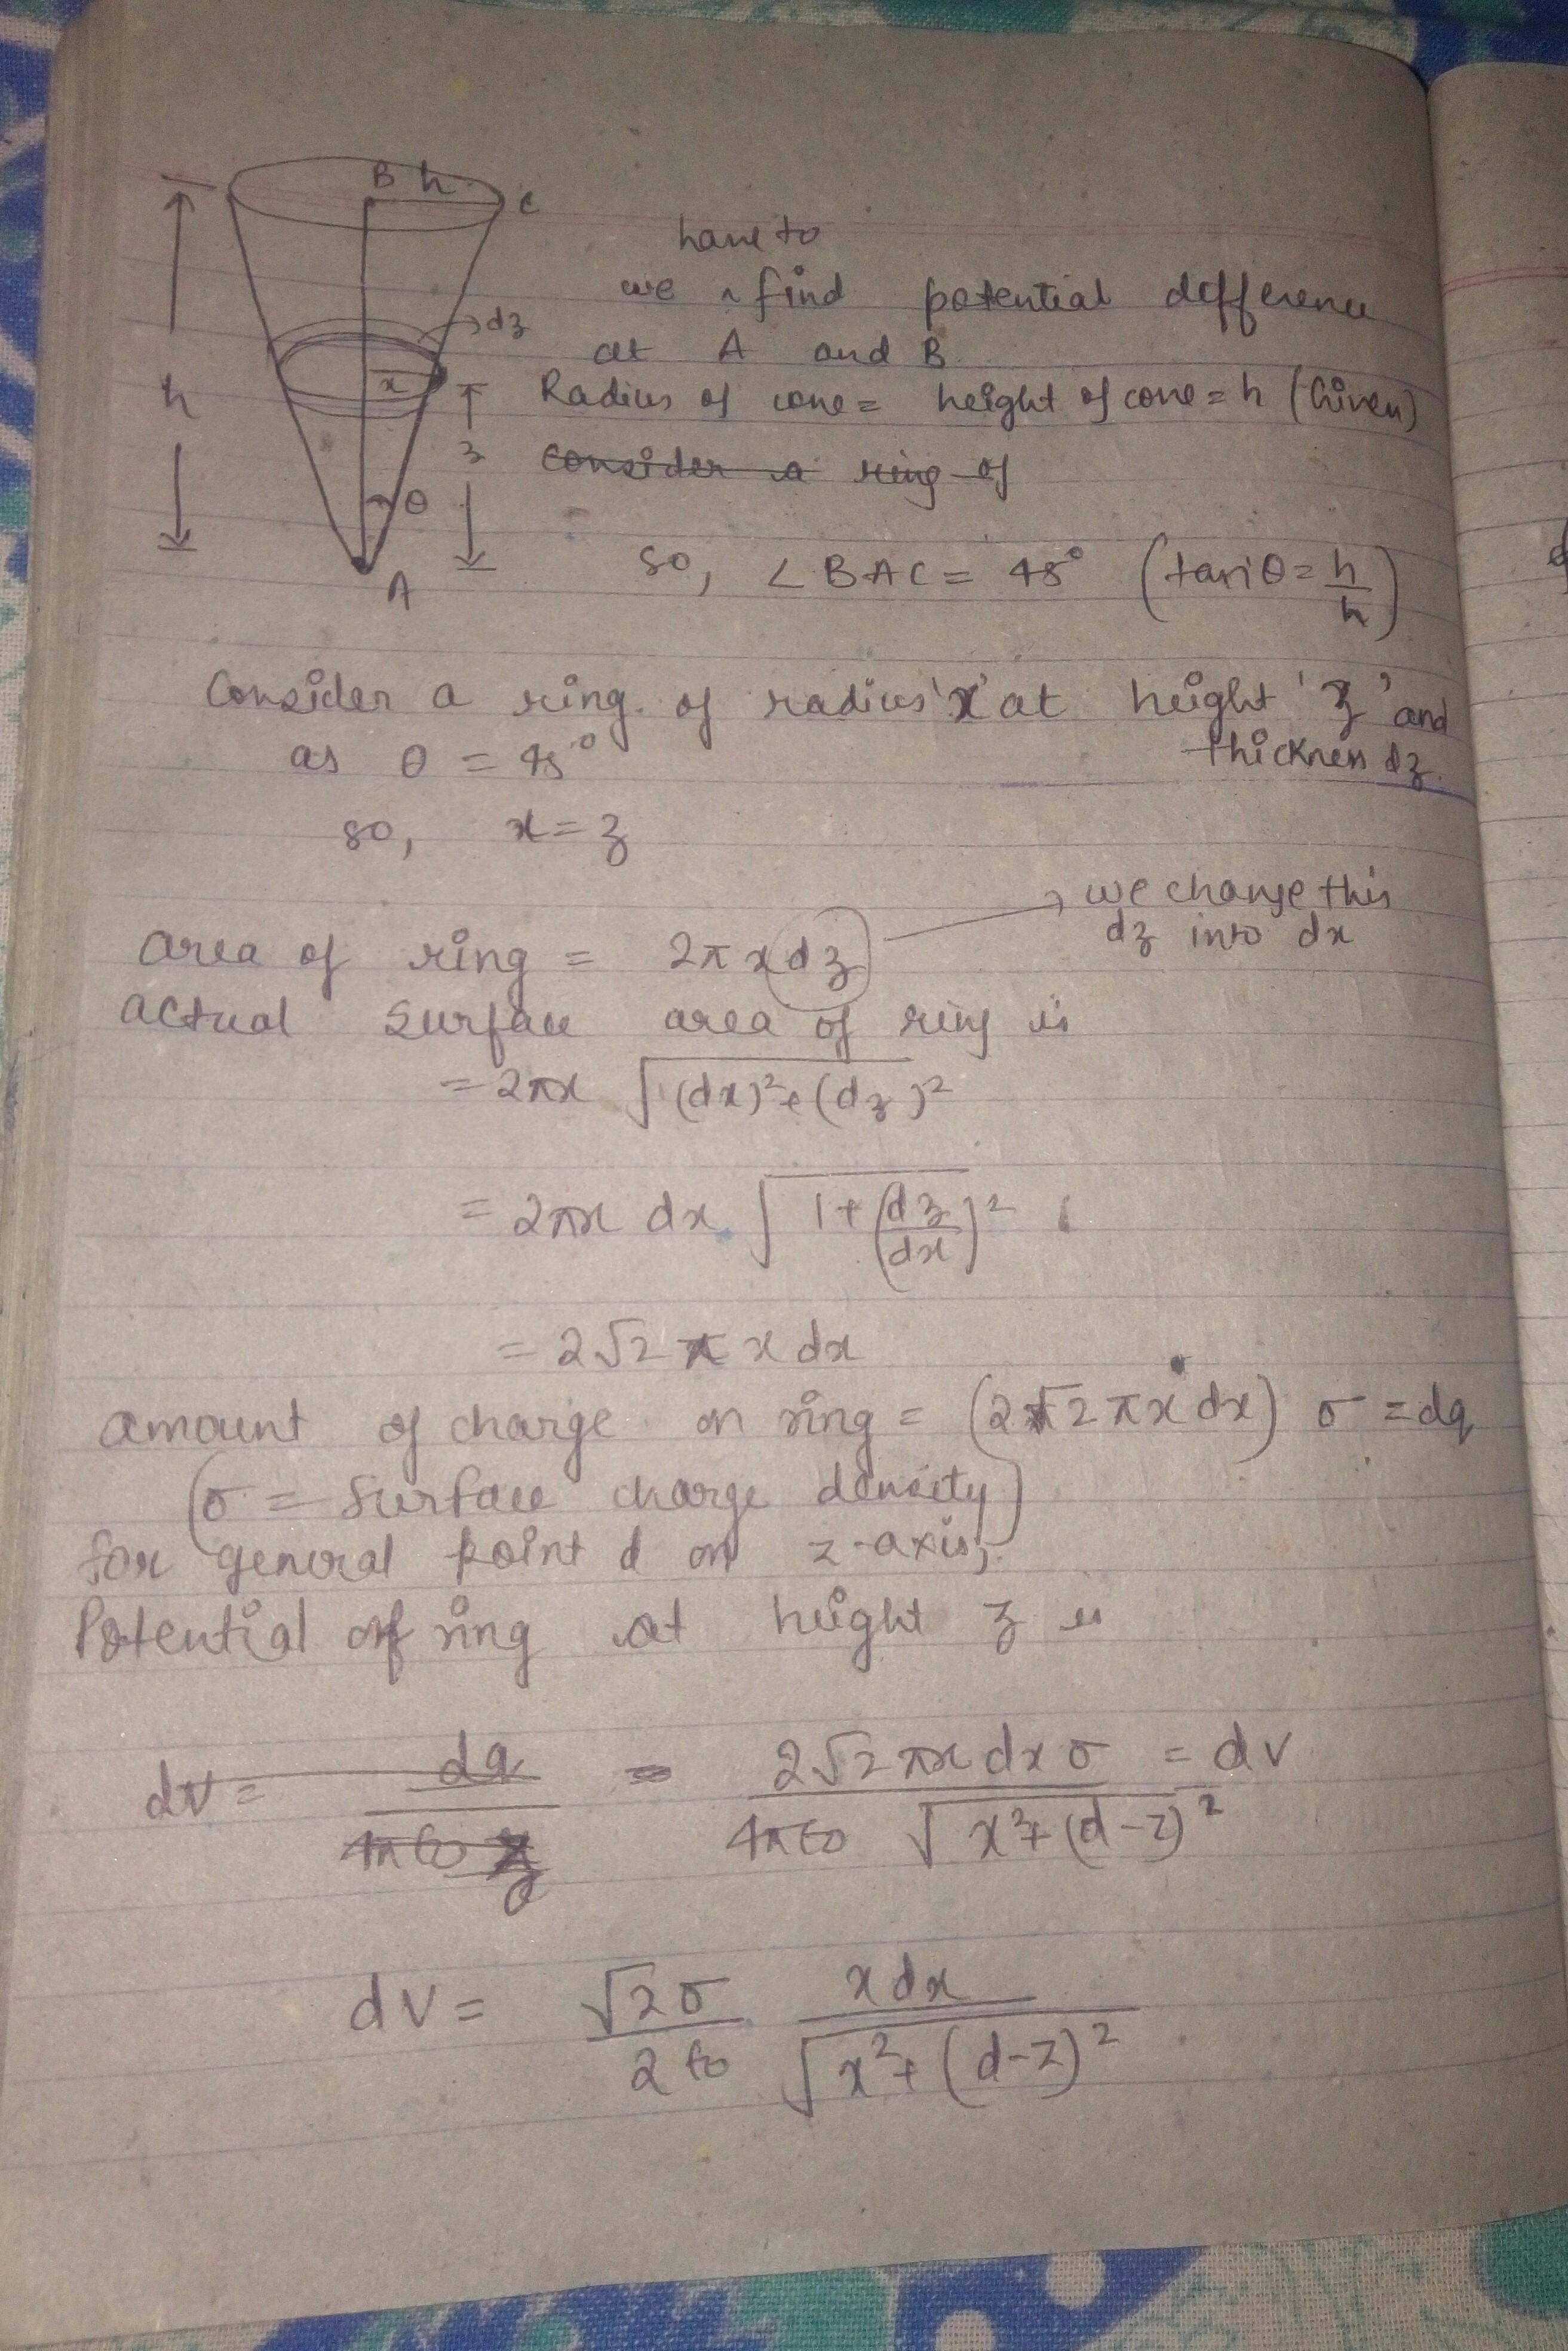 B h
C
have to
we ^ find potential difference
dz
at A and B
h
x
Radius of cone = height of cone = h (Given)
z
consider a ring of
θ
A
so, ∠BAC = 45° (tanθ = h/h)
Consider a ring of radius 'x' at height 'z' and
thickness dz.
as θ = 45°
so, x = z
we change this
dz into dx
area of ring = 2π x dz
actual surface area of ring is
= 2πx √((dx)²+(dz)²)
= 2πx dx √(1+(dz/dx)²)
= 2√2 π x dx
amount of charge on ring = (2√2 πx dx) σ = dq
(σ = surface charge density)
for general point d on z-axis,
Potential of ring at height z is
dV = dq/4πε0 z = 2√2 πx dx σ / 4πε0 √(x²+(d-z)²) = dV
dV = √2σ/2ε0 x dx/√(x²+(d-z)²)